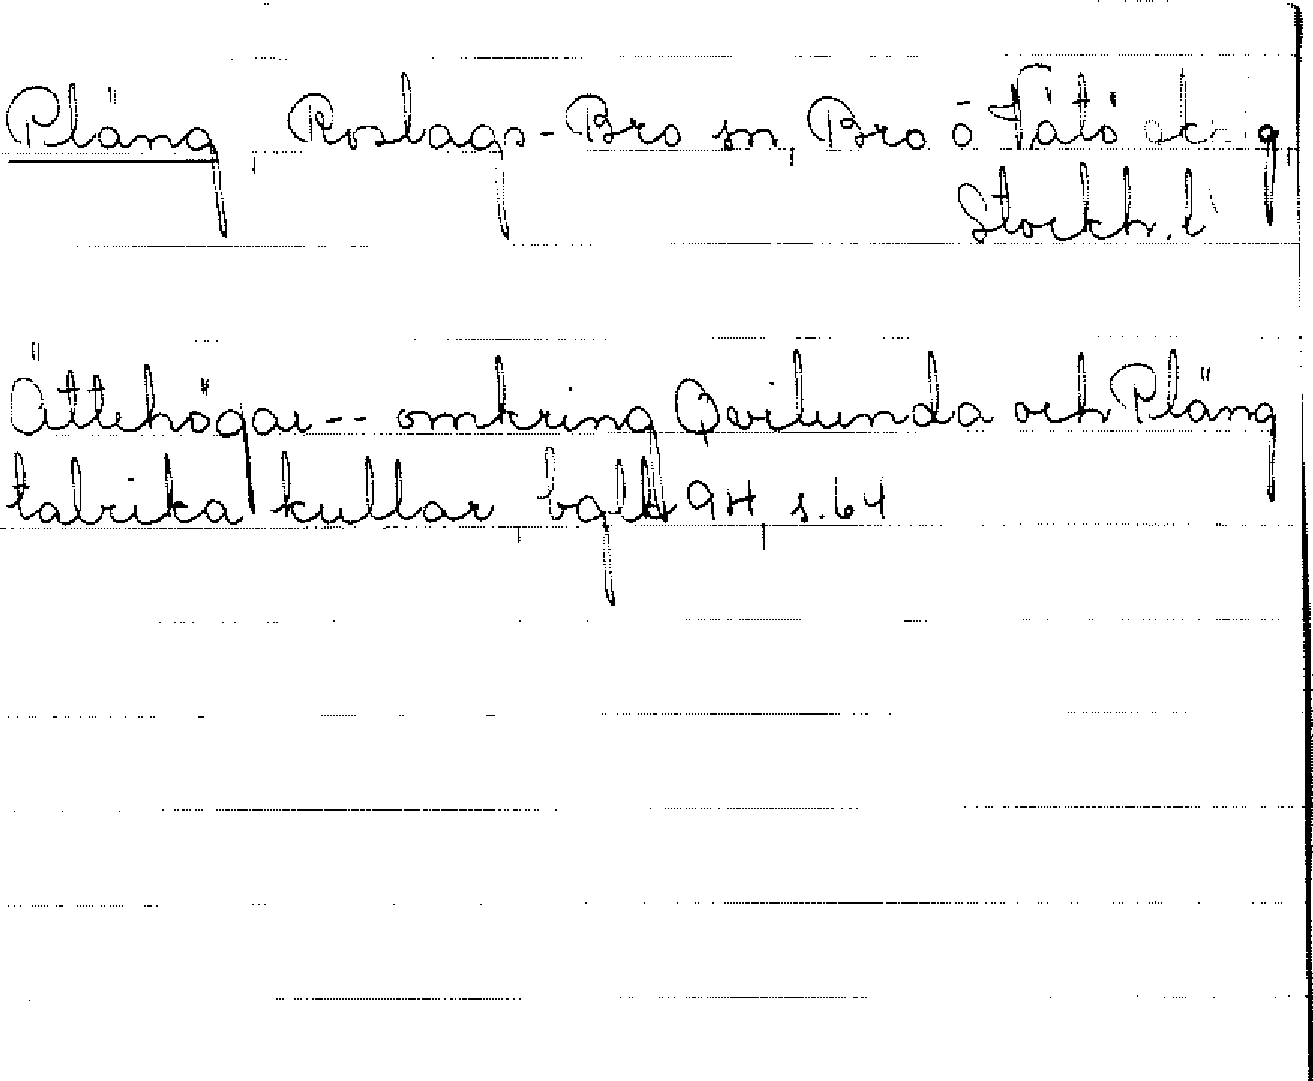 Pläng, Roslags-Bro sn, Bro o Vätö
Stockh. l
Ättehögar -- omkring Qvilunda och Pläng
talrika kullar, bqlH 9H, s. 64